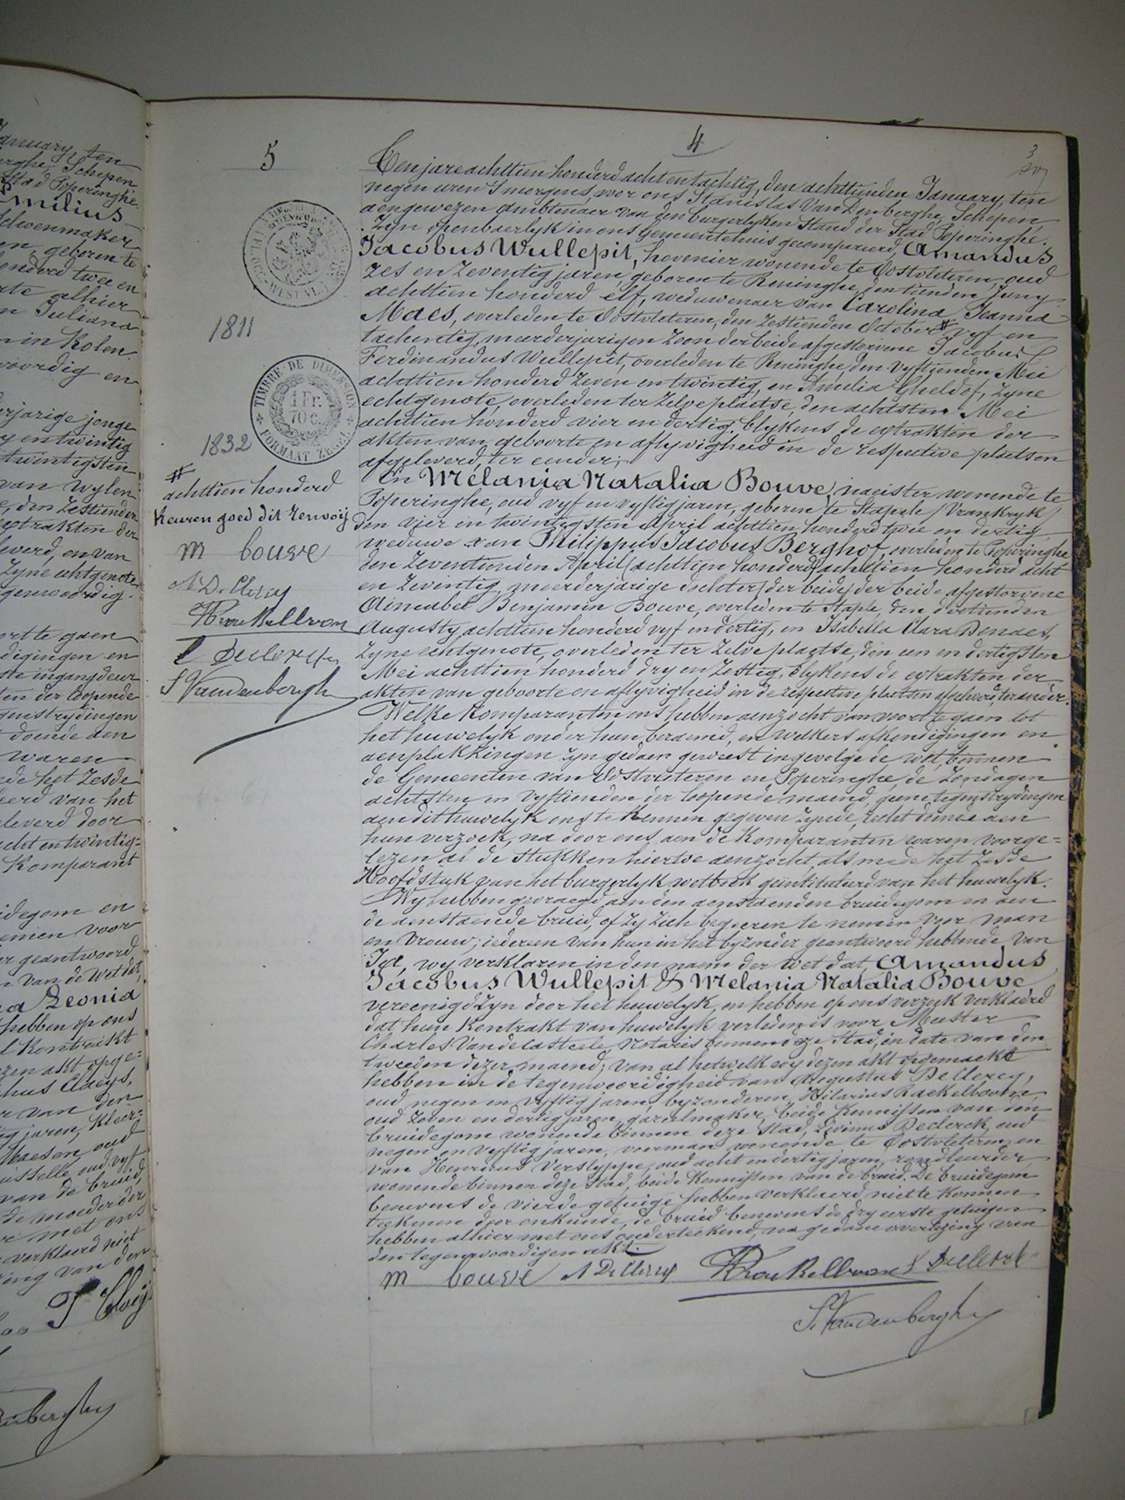 4
3
5
Ten jare achttien honderd acht en tachtig, den achttienden January, ten
negen uren 's morgens, voor ons Stanislas Van Den Berghe, Schepen
aengewezen Ambtenaer van den burgerlyken Stand der Stad Poperinghe,
Zyn openbaerlyk in ons Gemeentehuis gecompareerd, Amandus
Jacobus Wullepit, hovenier wonende te Oostvleteren, oud
zes en zeventig jaren, geboren te Reninghe, den tienden Juny
achttien honderd elf, weduwenaer van Carolina Jeanna
Maes, overleden te Oostvleteren, den zestienden October # vyf en
tachentig, meerderjarigen zoon der beide afgestorvene Jacobus
Ferdinandus Wullepit, overleden te Reninghe, den vyftienden Mei
achttien honderd zeven en twintig, en Amelia Gheldof, zyne
echtgenote, overleden ter zelve plaetse, den achtsten Mei
achttien honderd vier en dertig, blykens de extrakten der
akten van geboorte en aflyvigheid in de respective plaetsen
afgeleverd, ter eender;
En Mélania Natalia Bouve, naeister wonende te
Poperinghe, oud vyf en vyftig jaren, geboren te Staple (Vrankryk)
den vier en twintigsten April achttien honderd twee en dertig,
weduwe van Philippus Jacobus Berghof, overleden te Poperinghe
den zeventienden April achttien honderd achttien honderd acht
en zeventig, meerderjarige dochter der beide der beide afgestorvene
Aimabel Benjamin Bouve, overleden te Staple, den dertienden
Augusty achttien honderd vyf en dertig, en Isabella Clara Denaes,
zyne echtgenote, overleden ter zelve plaetse, den een en dertigsten
Mei achttien honderd dry en zestig, blykens de extrakten der
akten van geboorte en aflyvigheid in de respective plaetsen afgeleverd, ter ander.
Welke Komparanten ons hebben aenzocht van voort te gaen tot
het huwelyk onder hun beraemd, en welkers afkondigingen en
aenplakkingen zyn gedaen geweest ingevolge de wet, binnen
de Gemeenten van Oostvleteren en Poperinghe, de zondagen
achtsten en vyftienden der loopende maend, geene tegenstrydingen
aen dit huwelyk ons te kennen gegeven zynde, recht doende aen
hun verzoek, na door ons, aen de Komparanten waren voorge-
lezen al de stukken hiertoe aenzocht als mede het zesde
Hoofdstuk van het burgerlyk wetboek geïntituleerd van het huwelyk.
Wy hebben gevraegd aen den aenstaenden bruidegom en aen
de aenstaende bruid, of zy zich begeeren te nemen voor man
en vrouw; iedereen van hun in het byzonder geantwoord hebbende van
Ja, wy verklaren in den naem der wet dat, Amandus
Jacobus Wullepit & Mélania Natalia Bouve,
vereenigd zyn door het huwelyk, en hebben op ons verzoek verklaerd
dat hun Kontrakt van huwelyk verleden is voor Meester
Charles Vandelasteele, Notaris binnen deze Stad, in date van den
tweeden dezer maend; van al hetwelk wy dezen akt opgemaekt
hebben in de tegenwoordigheid van Augustus De Clercq,
oud negen en vyftig jaren, byzonderen, Hilarius Rackelboom,
oud zeven en dertig jaren, garelmaker, beide Kennissen van den
bruidegom, wonende binnen deze Stad, Livinus Declerck, oud
negen en vyftig jaren, voerman, wonende te Oostvleteren, en
van Henricus Verslyppe, oud acht en dertig jaren,
wonende binnen deze Stad, beide Kennissen van de bruid. De bruidegom
benevens de vierde getuige hebben verklaerd niet te konnen
teekenen door onkunde, de bruid benevens de dry eerste getuigen
hebben alhier met ons onderteekend, na gedane overlezing van
den tegenwoordigen akt.
m bouve A DeClercq L Declerck
S. Vandenberghe
1811
TIMBRE DE DIMENSION
1 Fr.
70 c.
FORMAAT ZEGEL
1832
# achttien honderd
Keuren goed dit renvoij
m bouve
A DeClercq
L Declerck
S Vandenberghe